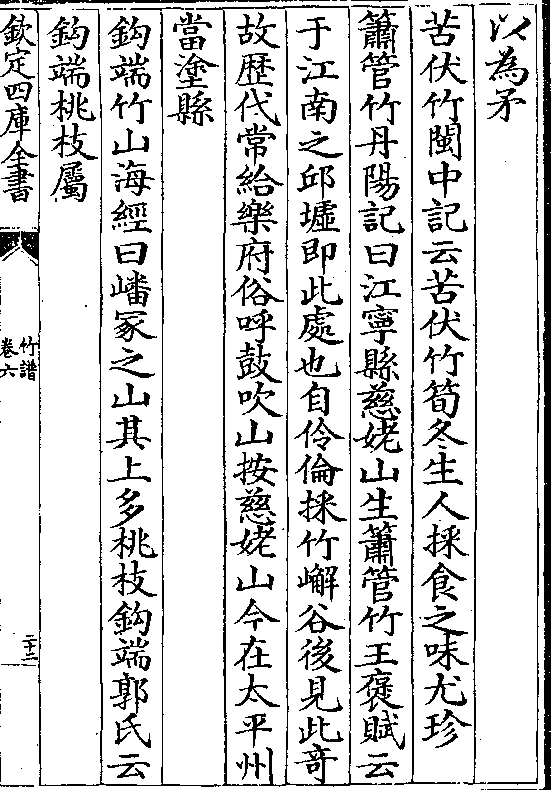 以為矛
苦伏竹閩中記云苦伏竹筍冬生人採食之味尤珍
簫管竹丹陽記曰江寧縣慈姥山生簫管竹王褒賦云
于江南之邱墟即此處也自伶倫採竹嶰谷後見此竒
故歴代常給樂府俗呼鼓吹山按慈姥山今在太平州
當塗縣
鈎端竹山海經曰嶓冢之山其上多桃枝鈎端郭氏云
鈎端桃枝屬
欽定四庫全書
竹譜
卷六
二十二